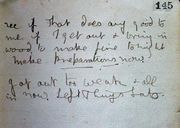 145
see if that does any good to
me. if I get out & bring in
wood to make fire tonight
make preparations now.
got out too weak & all
in now. left things late.